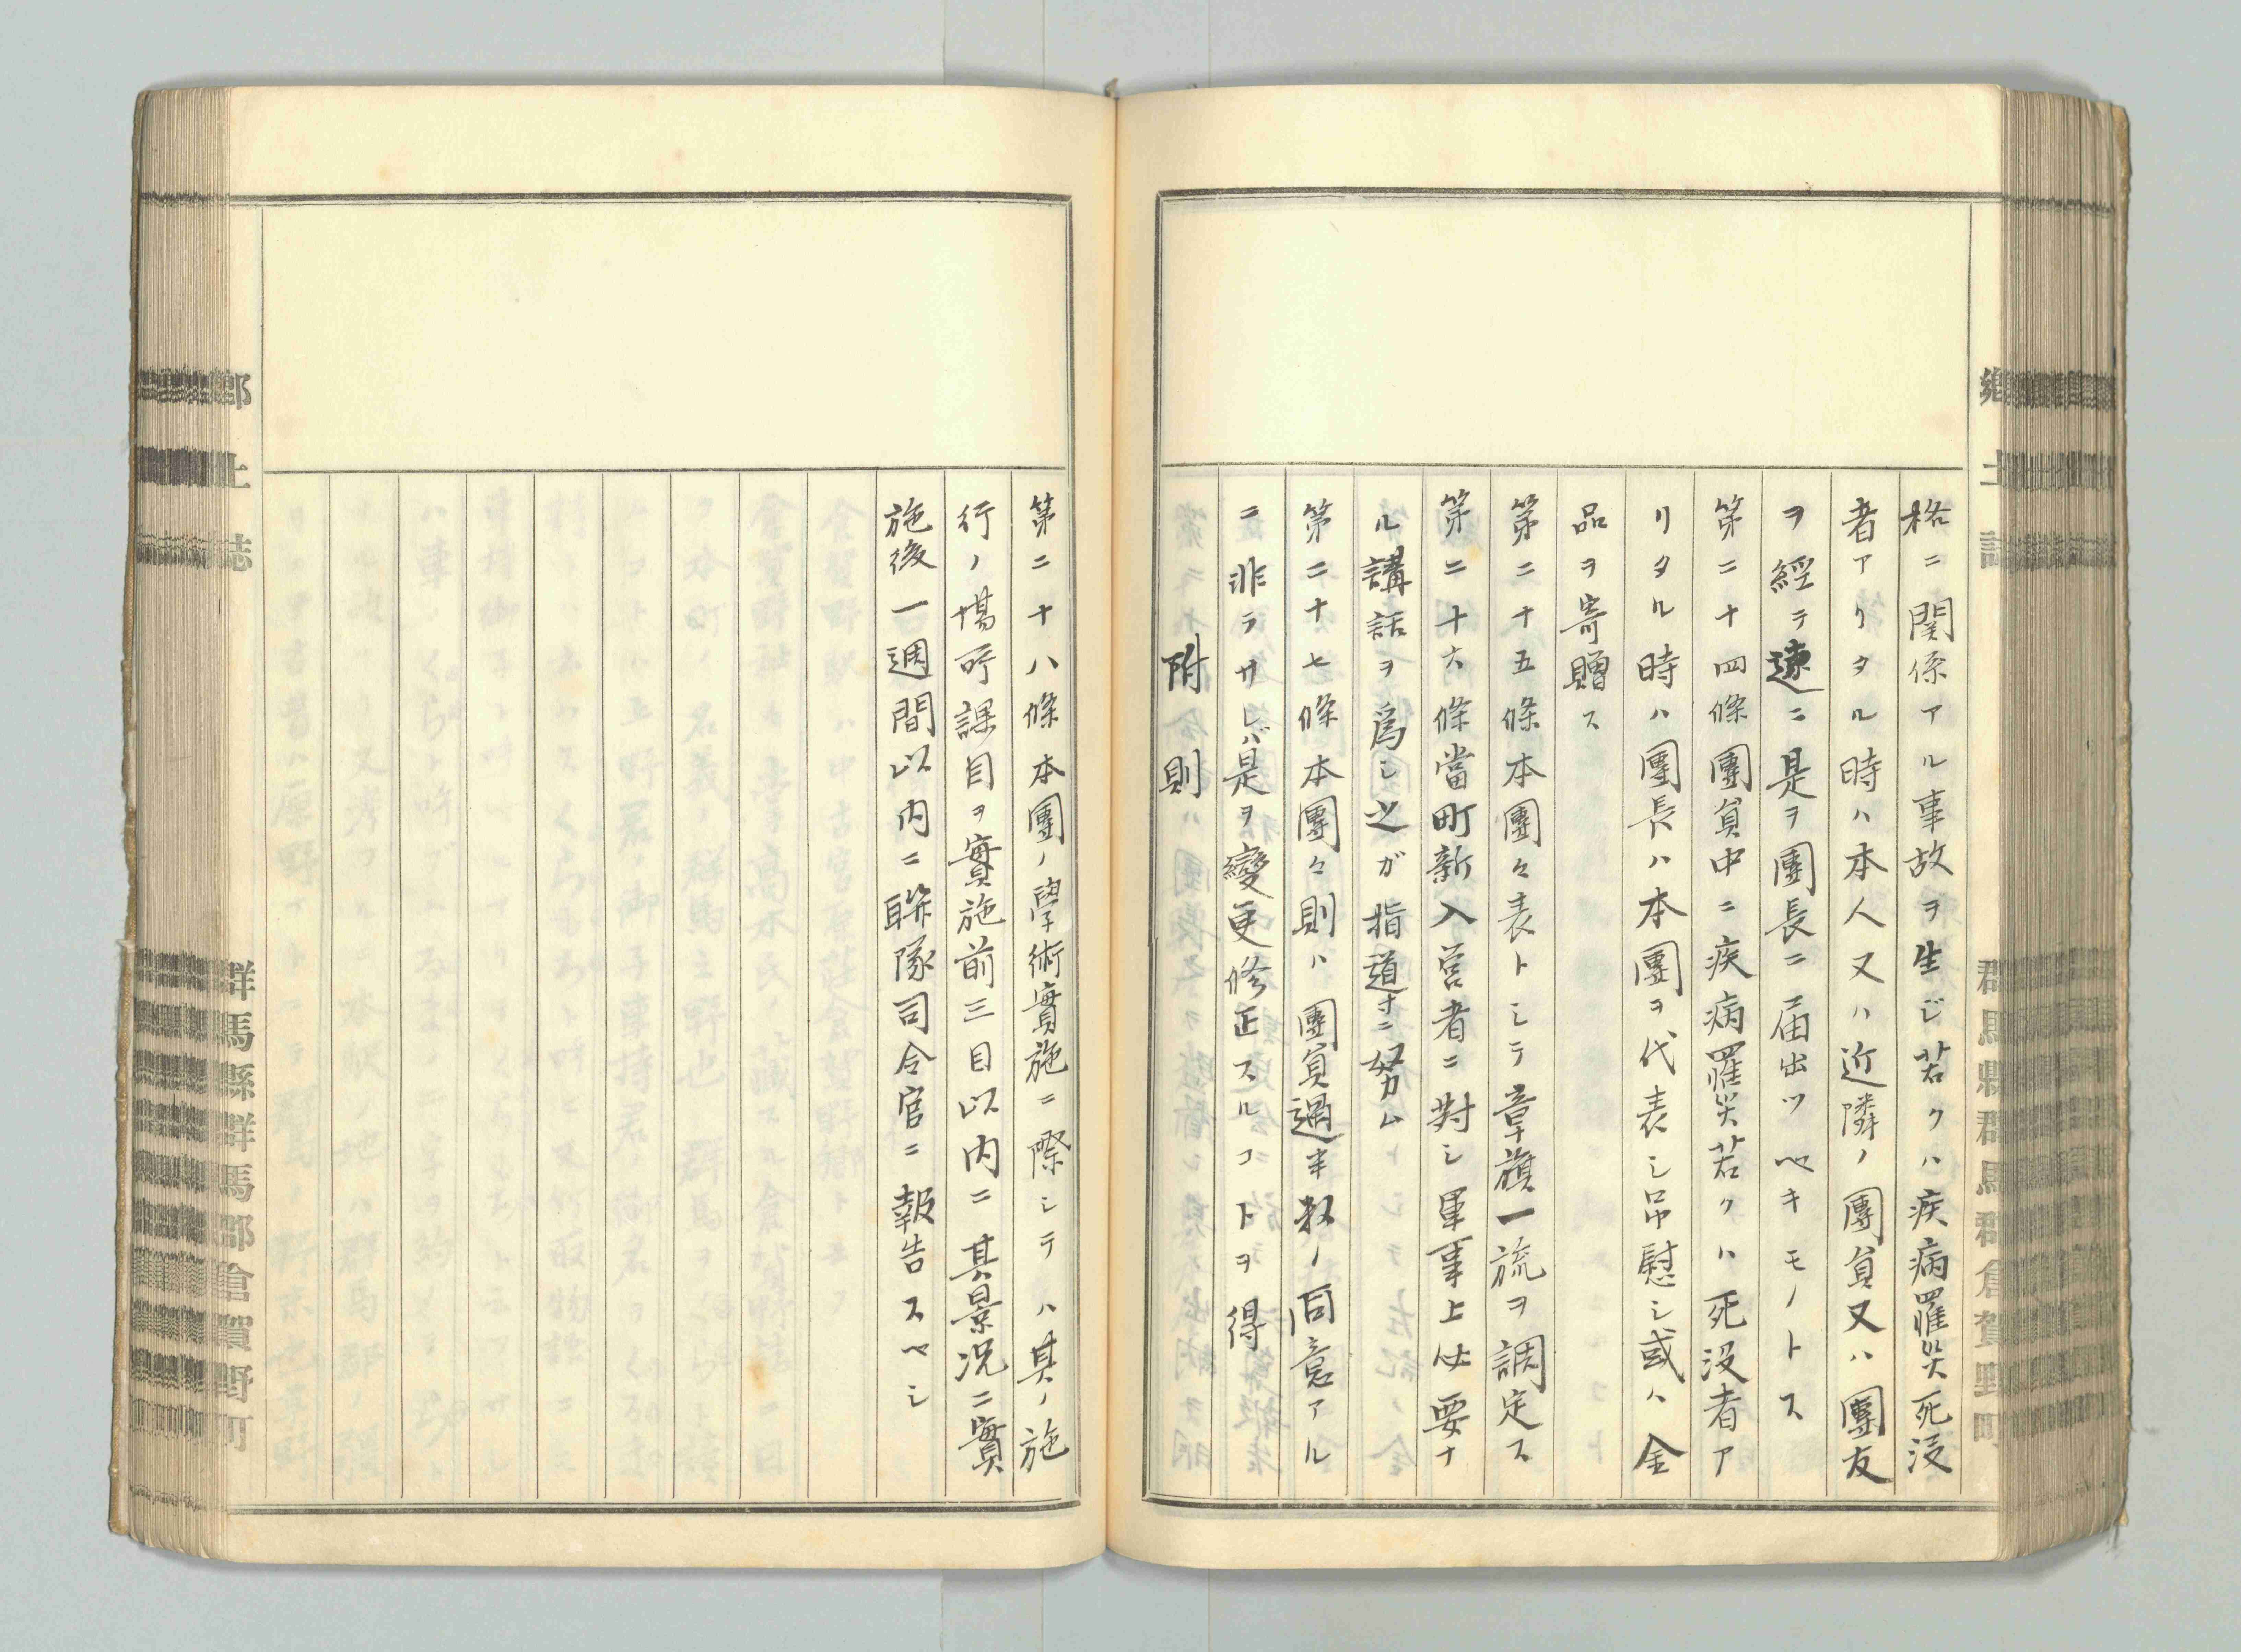 鄕土誌
群馬縣群馬郡倉賀野町
格ニ関係アル事故ヲ生ジ若クハ疾病罹災死没
者アリタル時ハ本人又ハ近隣ノ團員又ハ團友
ヲ經テ速ニ是ヲ團長ニ届出ツベキモノトス
第二十四條團員中ニ疾病罹災若クハ死没者ア
リタル時ハ團長ハ本團ヲ代表シ吊慰シ或ハ金
品ヲ寄贈ス
第二十五條本團々表トシテ章旗一旒ヲ調定ス
第二十六條當町新入営者ニ對シ軍事上必要ナ
ル講話ヲ爲シ之ガ指道オニ努ム
第二十七條本團々則ハ團員過半数ノ同意アル
ニ非ラサレバ是ヲ變更修正スルコトヲ得
附則
第二十八條本團ノ學術實施ニ際シテハ其ノ施
行ノ場所課目ヲ實施前三日以内ニ其景况ニ實
施後一週間以内ニ聯隊司令官ニ報告スベシ
鄕土誌
群馬縣群馬郡倉賀野町